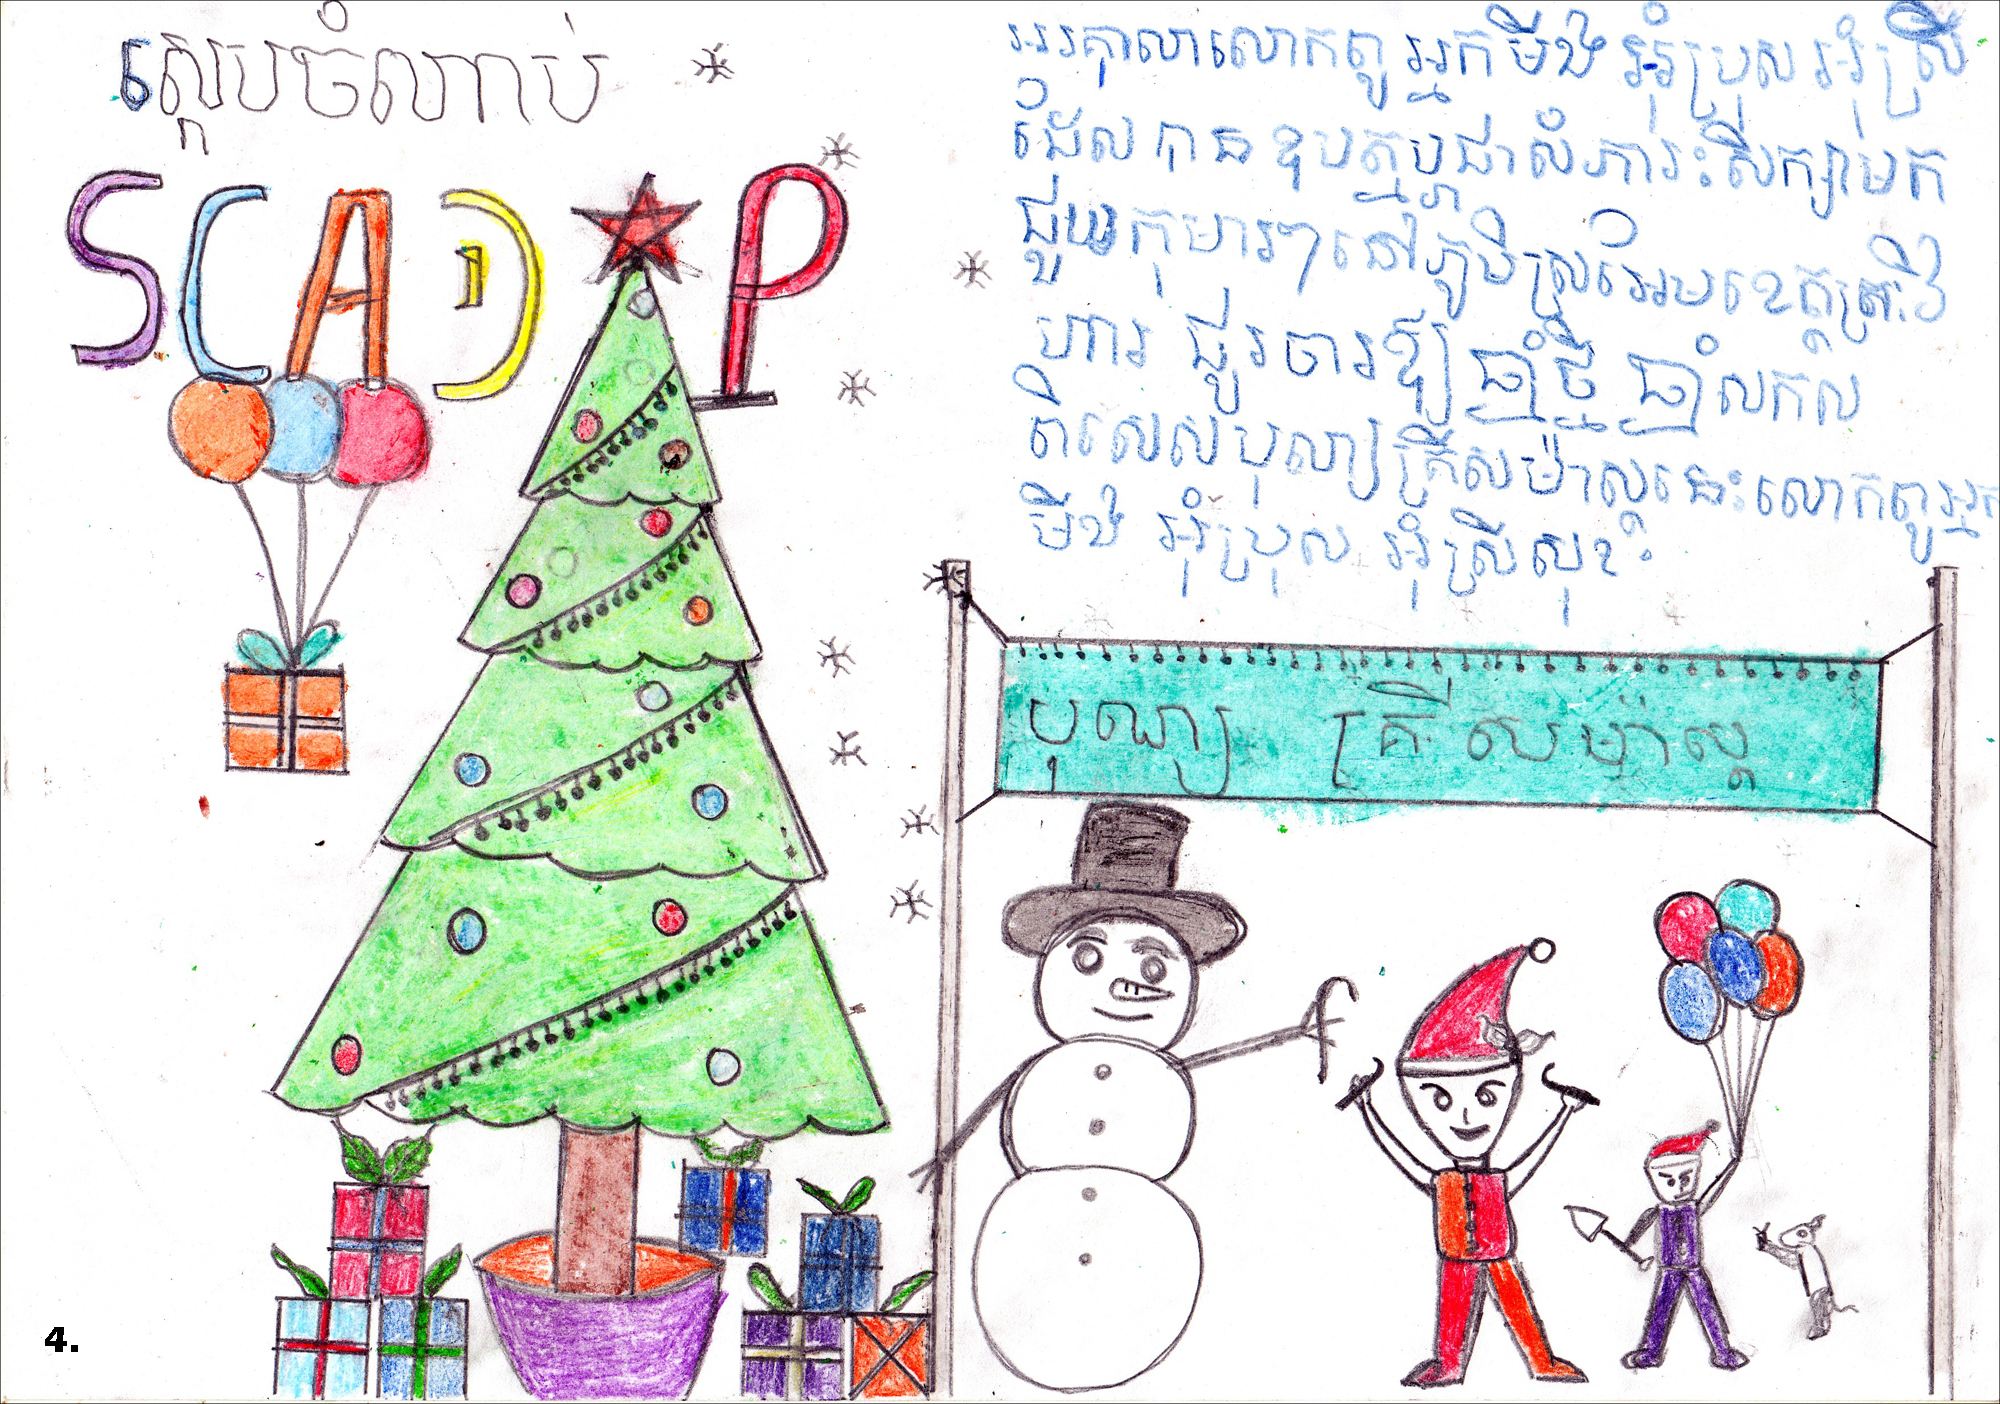 ស្តេបចំលាប់
SCADP
អរគុណលោកតា អ្នកមីង អ៊ុំប្រុស អ៊ុំស្រី
ដែលបាន ឧបត្ថម្ភជាសំភារ:សិក្សាមក
ជួយកុមារៗនៅភូមិស្រអែមខេត្តព្រះវិ
ហារ ជូរចារឱ្យ ឆ្នាំថ្មី ឆ្នាំសកល
ពិសេសបុណ្យគ្រីសម៉ាស្តនេះលោកតាអ្នក
មីង អ៊ុំប្រុស អ៊ុំស្រីសុខ
បុណ្យ គ្រីសម៉ាស្ត
4.